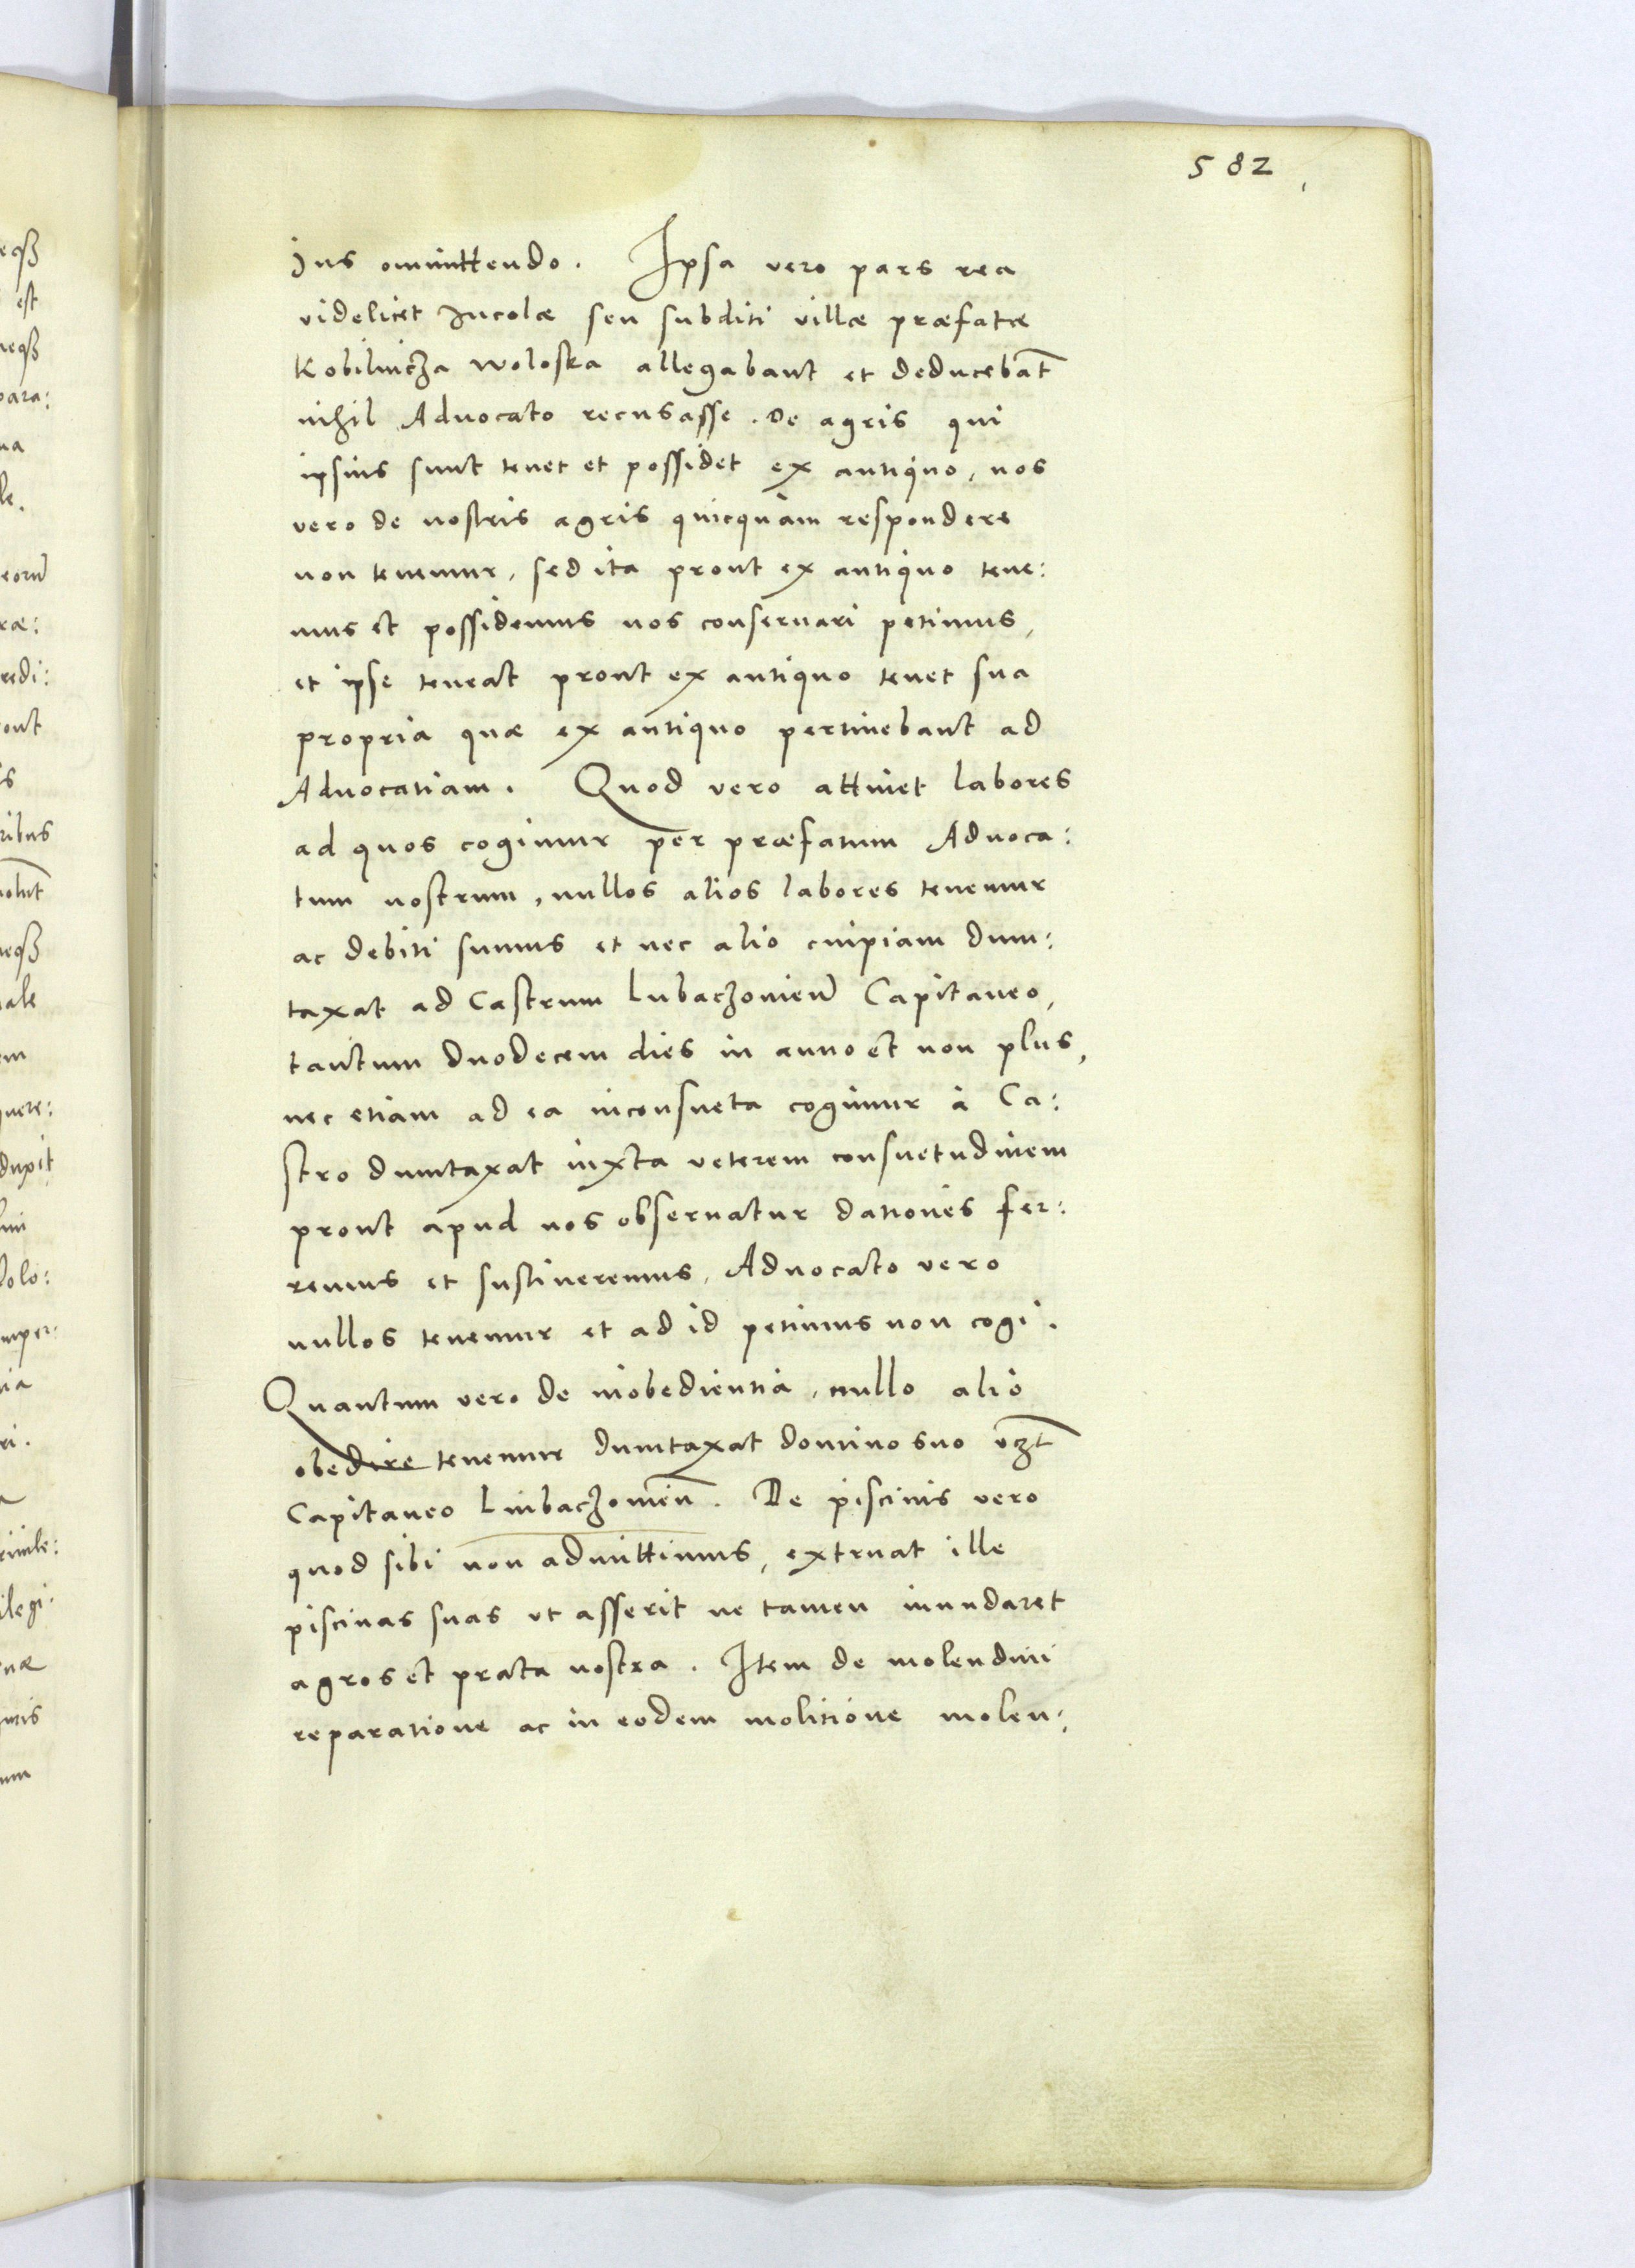 582
Ius ommittendo. Ipsa vero pars rea
videlicet Incolæ seu subditi villæ præfatæ
Kobilnicza Woloska allegabant et deducebāt
nihil Aduocato recusasse. De agris qui
ipsius sunt tenet et possidet ex antiquo, nos
vero de nostris agris quicquam respondere
non tenemur, sed ita prout ex antiquo tene:
mus et possidemus nos conseruari petimus,
et ipse teneat prout ex antiquo tenet sua
propria quæ ex antiquo pertinebant ad
Aduocatiam. Quod vero attinet labores
ad quos cogimur per præfatum Aduoca:
tum nostrum, nullos alios labores tenemur
ac debiti sumus et nec alio cuipiam dum:
taxat ad Castrum Lubaczouien̄ Capitaneo,
tantum duodecem dies in anno et non plus,
nec etiam ad ea inconsueta cogimur à Ca:
stro dumtaxat iuxta veterem consuetudinem
prout apud nos obseruatur dationes fer:
remus et sustineremus, Aduocato vero
nullos tenemur et ad id petimus non cogi.
Quantum vero de inobedientia, nullo alio
obedire tenemur dumtaxat domino suo vz̄t
Capitaneo Luibaczouien̄. De piscinis vero
quod sibi non admittimus, extruat ille
piscinas suas vt asserit ne tamen inundaret
agros et prata nostra. Item de molendini
reparatione ac in eodem molitione molen:
eqʒ
est
neqʒ
para:
le.
eorum̄
ræ:
redi:
ont
ribus
neqʒ
ale
em
quere:
dupit
Polo:
mper:
ri.
riuile:
ilegi: